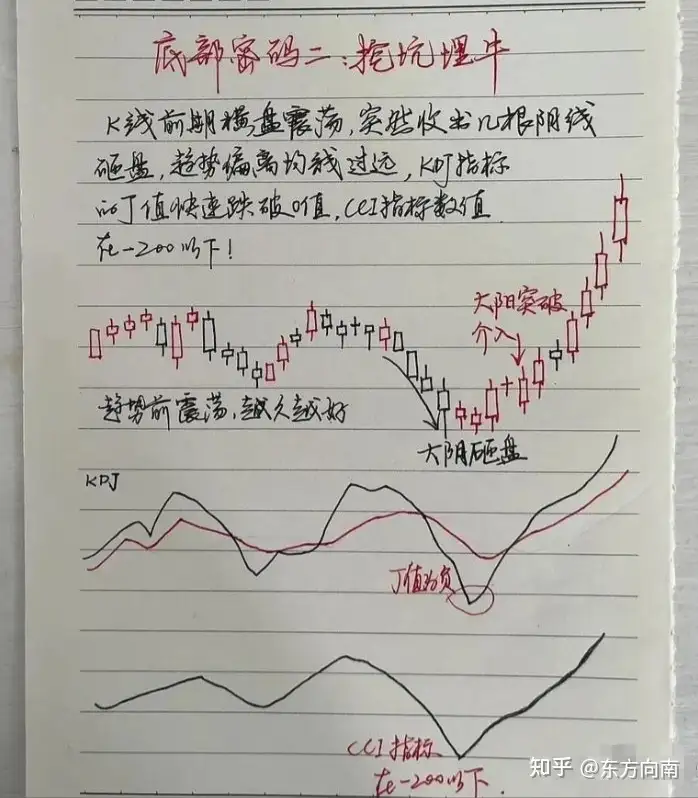 底部密码二：挖坑埋牛
K线前期横盘震荡，突然收出几根阴线
砸盘，趋势偏离均线过远，KDJ指标
的J值快速跌破0值，CCI指标数值
在-200以下！
大阳突破
介入
趋势前震荡，越久越好
大阴砸盘
KDJ
J值为负
CCI指标
在-200以下.
知乎 @东方向南